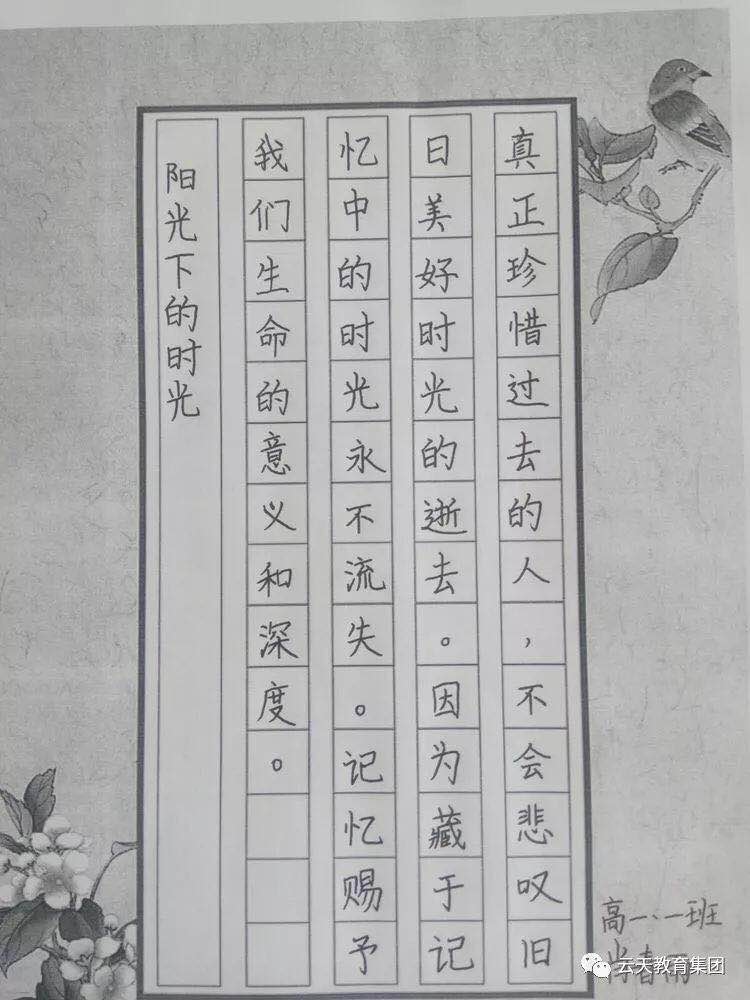 真正珍惜过去的人，不会悲叹旧
日美好时光的逝去。因为藏于记
忆中的时光永不流失。记忆赐予
我们生命的意义和深度。
阳光下的时光
高一·一班
云天教育集团